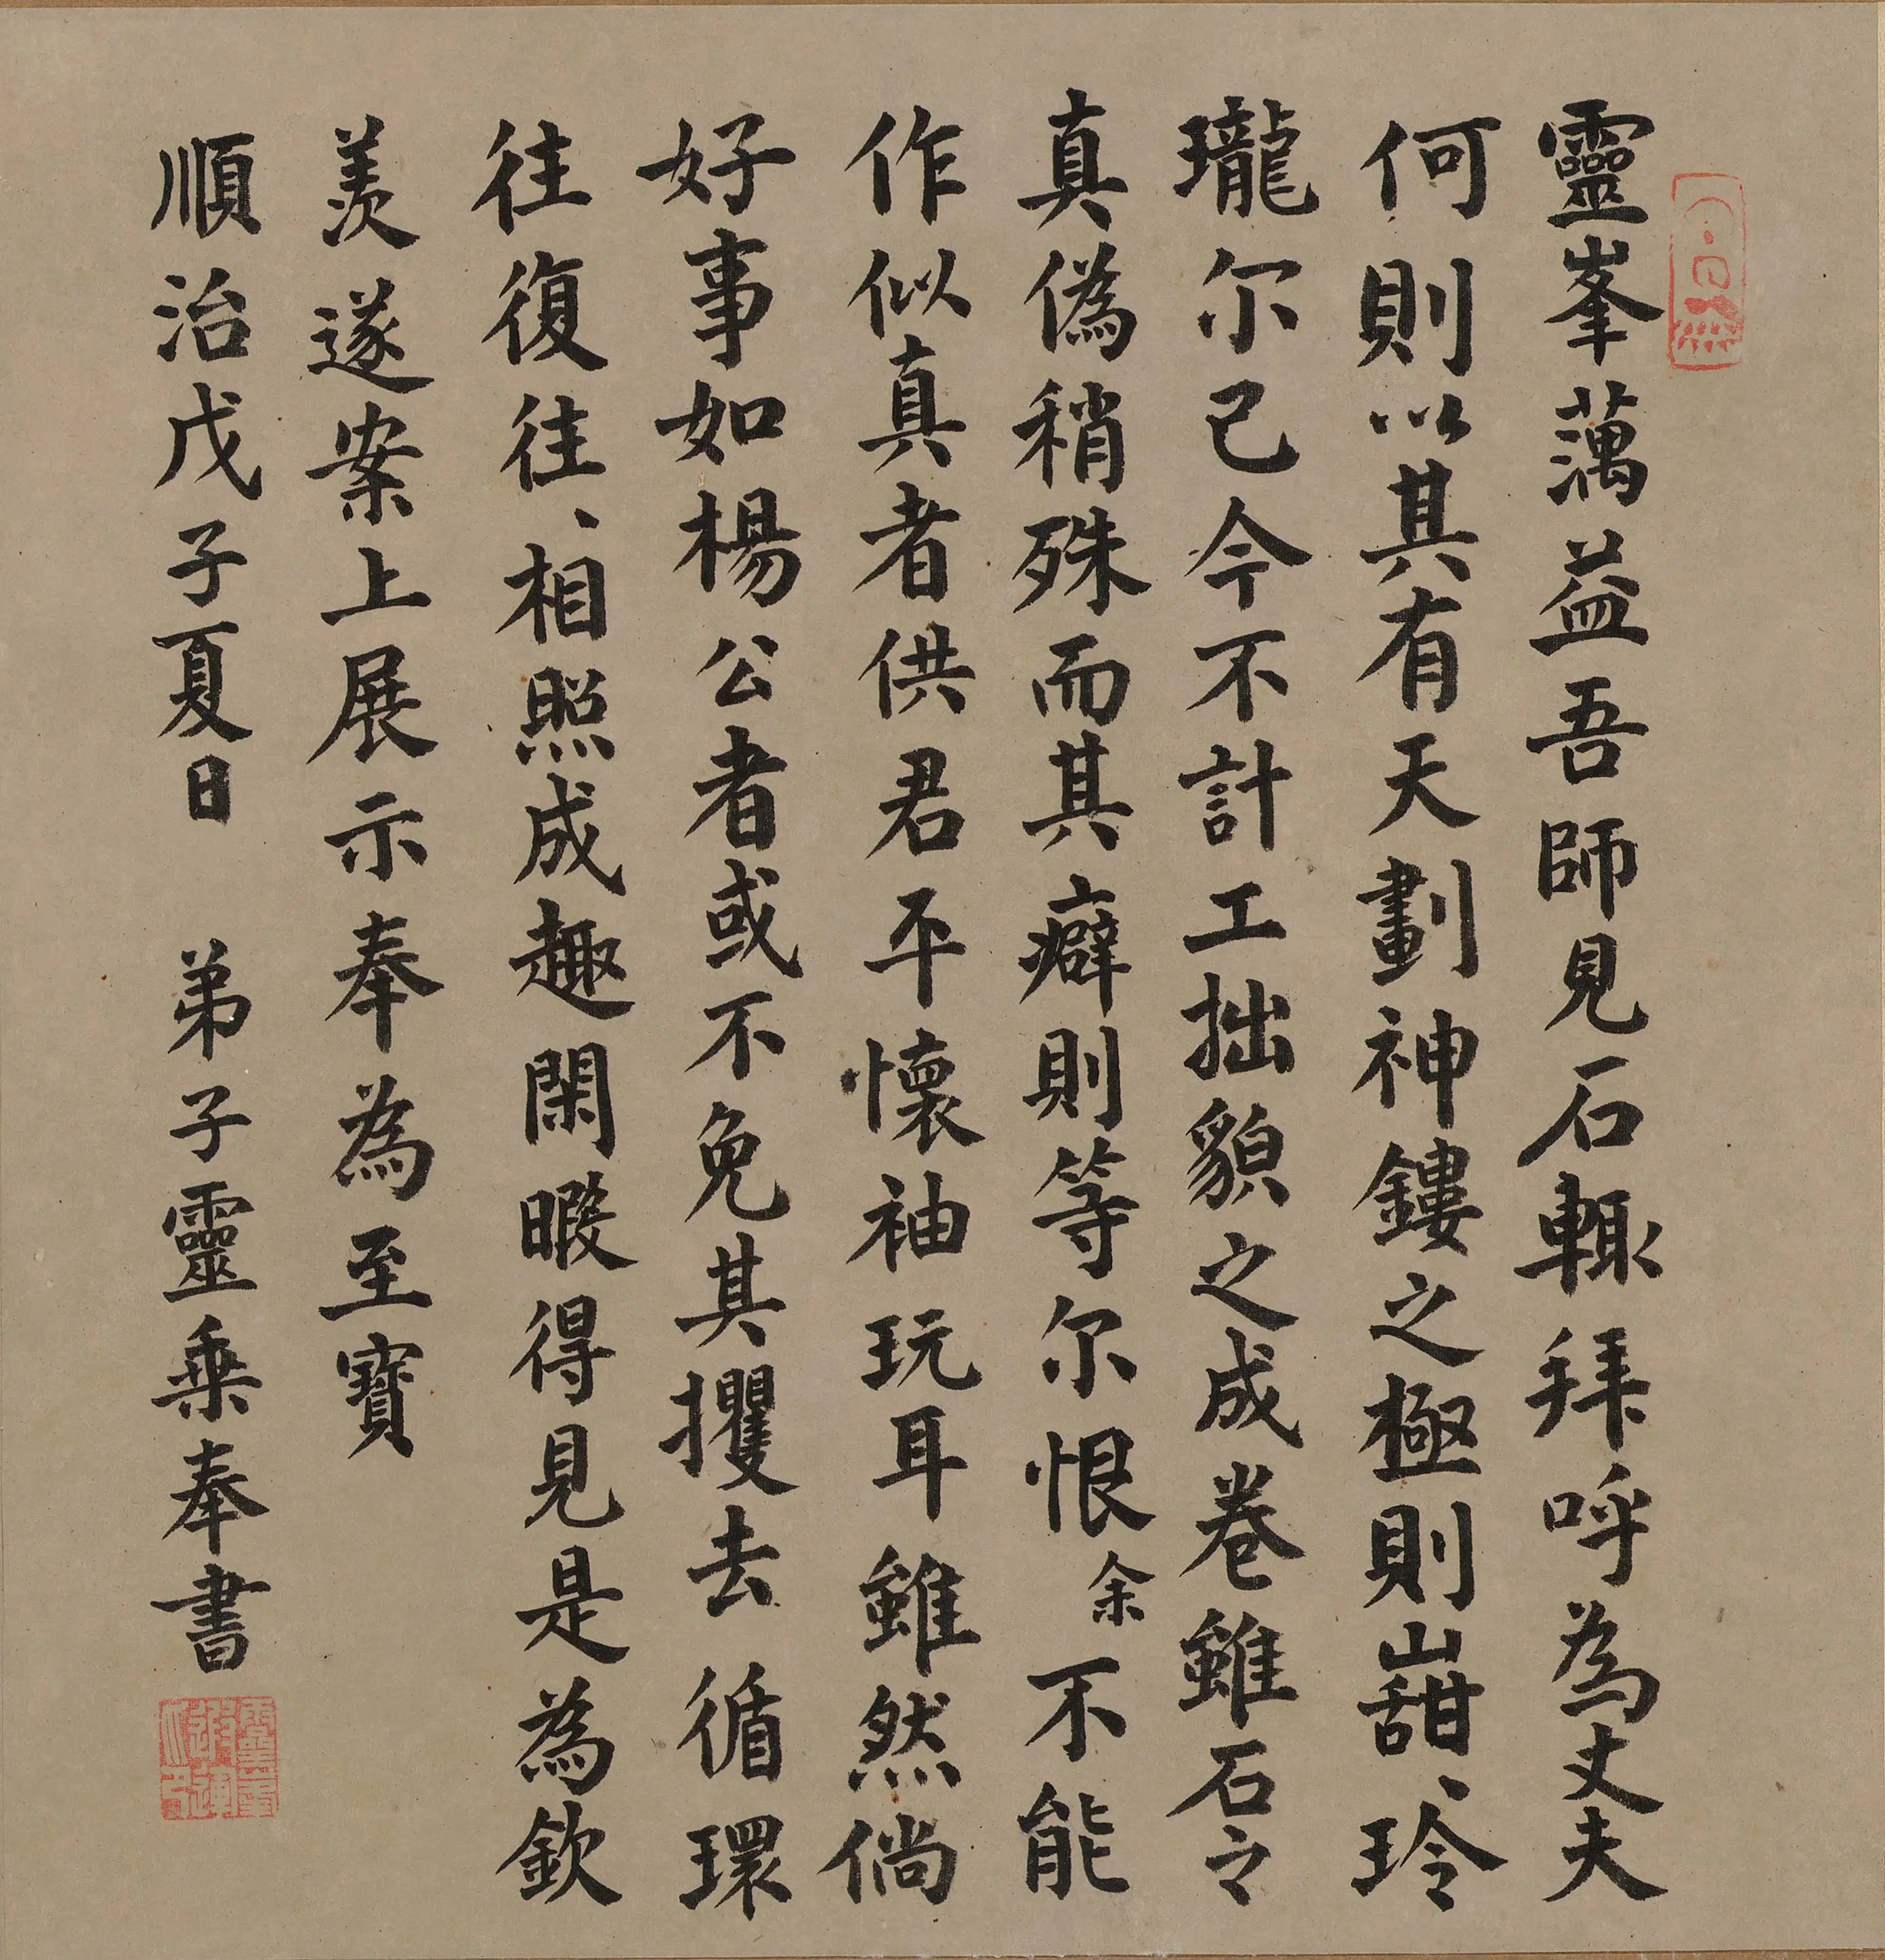 靈峯蕅益吾師見石輙拜呼為丈夫
何則以其有天劃神鏤之極則嵌、玲
瓏尔已今不計工拙貌之成卷雖石之
真偽稍殊而其癖則等尔恨余不能
作似真者供君平懷袖玩耳雖然倘
好事如楊公者或不免其攫去循環
往復往、相照成趣閑暇得見是為欽
羨遂案上展示奉為至寶
順治戊子夏日 弟子靈乗奉書